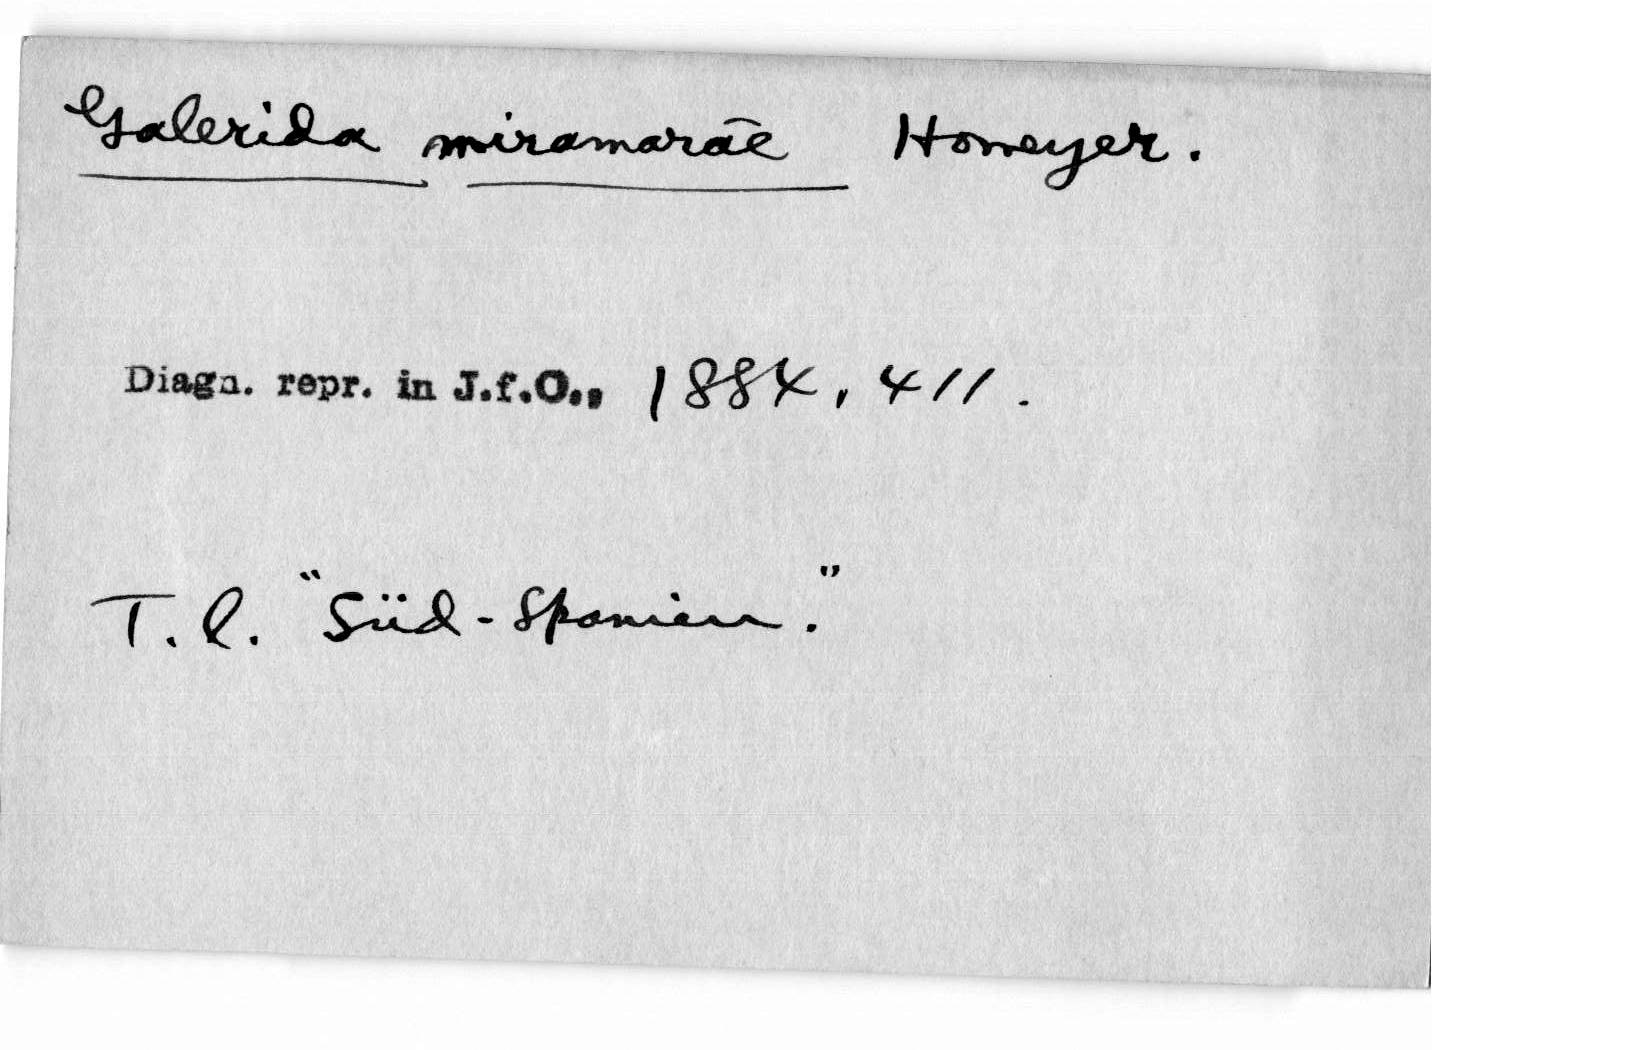 Galerida miramarae Homeyer.
Diagn. repr. in J.f.O., 1884, 411.
T. l. "Süd-Spanien."